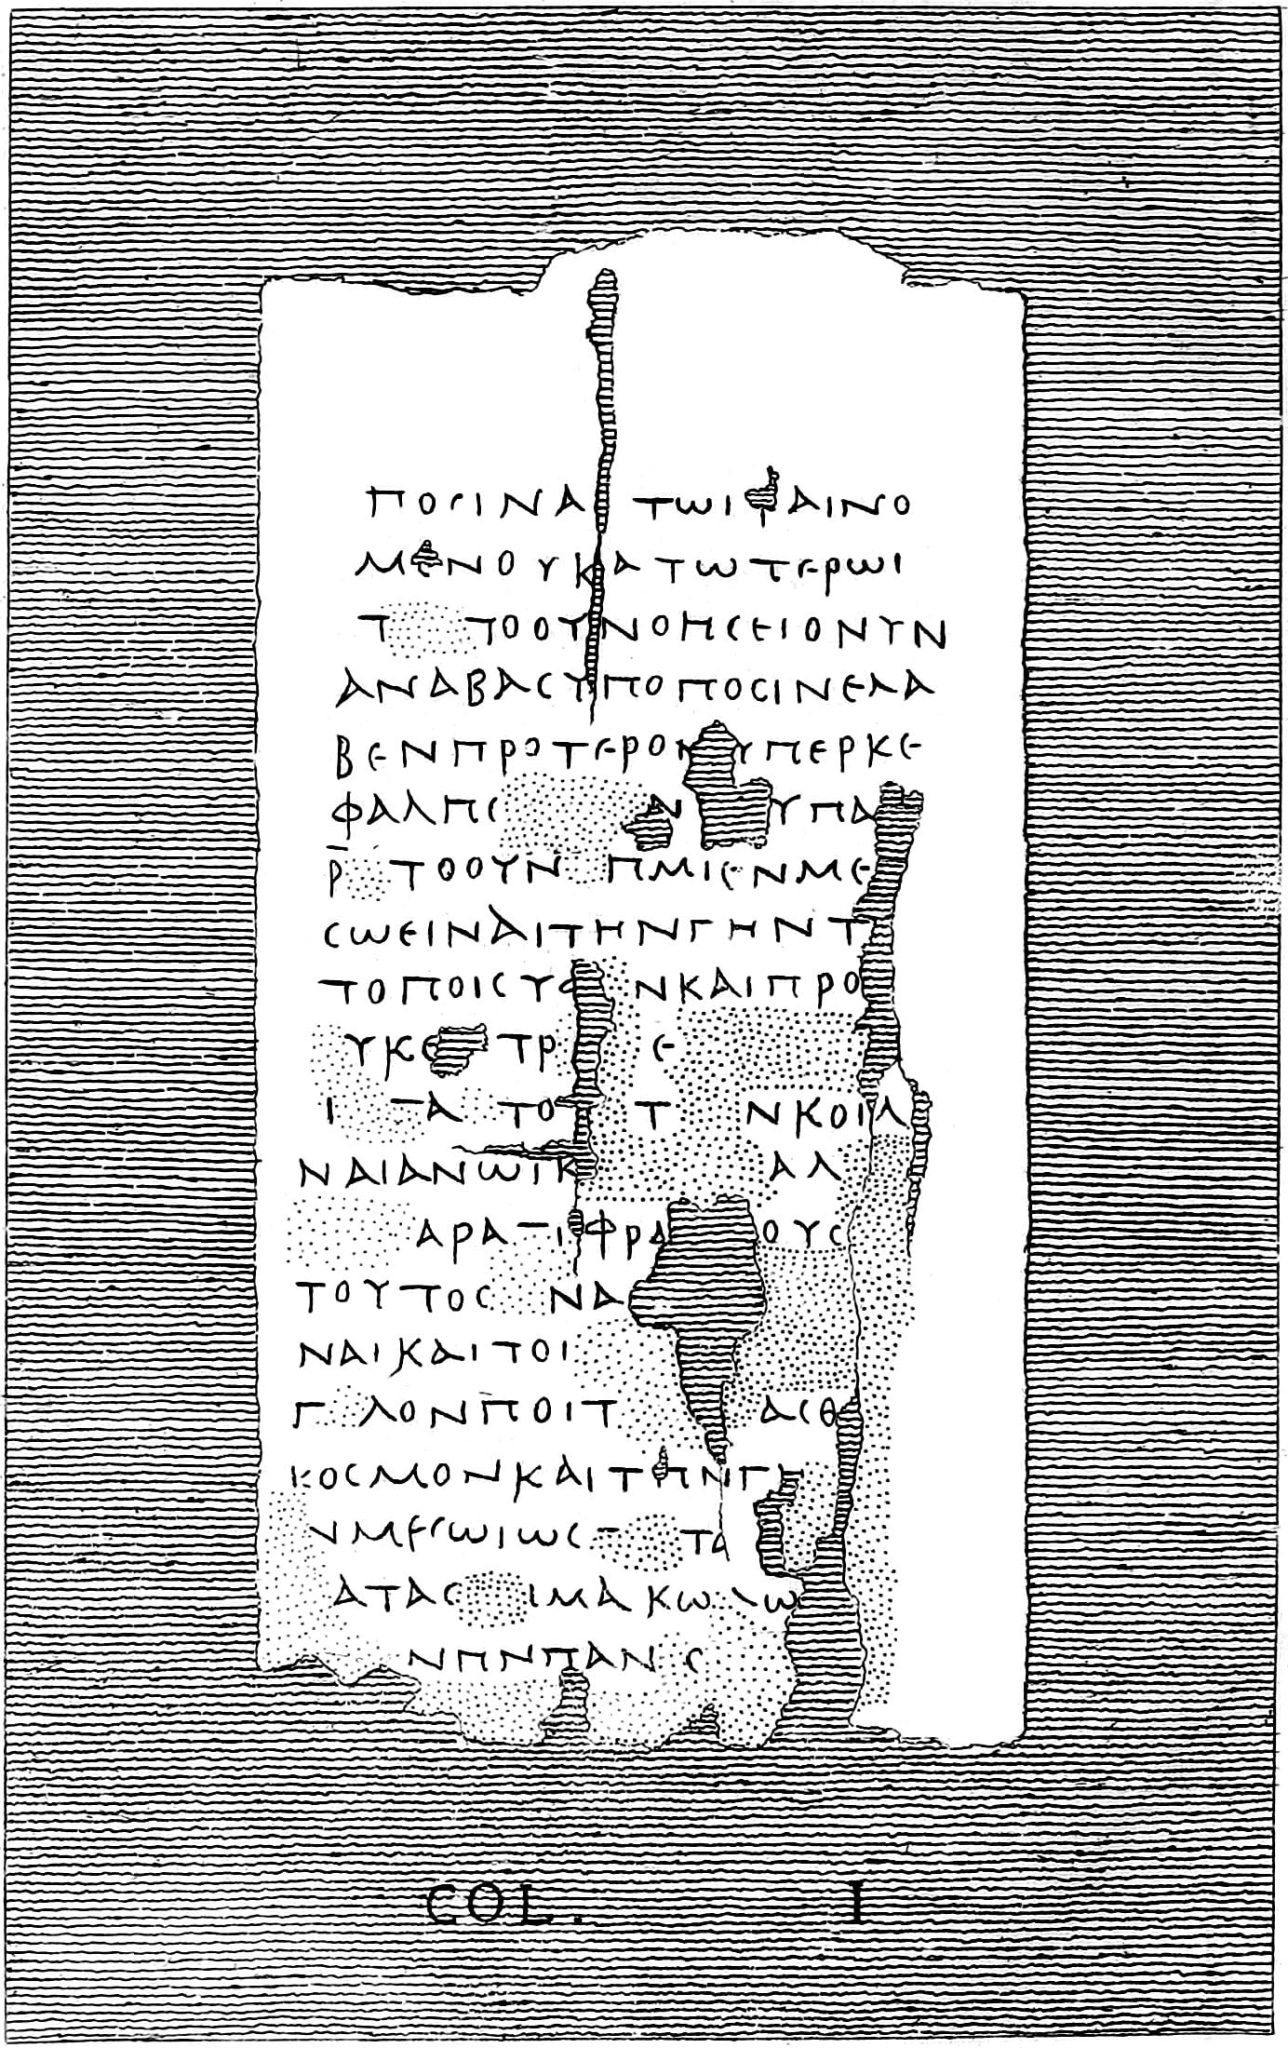 ΠΟϹΙΝΑ ΤΩΙΦΑΙΝΟ
ΜΕΝΟΥΚΑΤΩΤΕΡΩΙ
Τ ΤΟΟΥΝΟΗϹΕΙΟΝΥΝ
ΑΝΑΒΑϹΥΠΟΠΟϹΙΝΕΛΑ
ΒΕΝΠΡΟΤΕΡΟΝΥΠΕΡΚΕ
ΦΑΛΗϹ ΑΝ ΥΠΑ
Ρ ΤΟΟΥΝ ΗΜΙΕΝΜΕ
ϹΩΕΙΝΑΙΤΗΝΓΗΝΤ
ΤΟΠΟΙϹΥΦ ΝΚΑΙΠΡΟ
ΥΚΕ ΤΡ Ε
Ι ΤΑ ΤΟ Τ ΝΚΟΙΛ
ΝΑΙΑΝΩΙΚ ΑΛ
ΑΡΑΤΙΦΡΑ ΟΥϹ
ΤΟΥΤΟϹ ΝΑ
ΝΑΙΚΑΙΤΟΙ
Γ ΛΟΝΠΟΙΤ ΑϹΘ
ΚΟϹΜΟΝΚΑΙΤΗΝΓΗ
ΝΜΕϹΩΙΩϹ ΤΑ
ΑΤΑϹ ΙΜΑΚΩΛΩ
ΝΗΝΠΑΝ Ϲ
COL. I